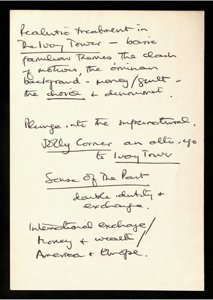 Realistic treatment in
The Ivory Tower – basic
familiar themes, the clash
of motives, the ominous
background - money/guilt -
the move & denouement.
Plunge into the supernatural.
Jolly Corner an alter ego
to Ivory Tower
Sense Of The Past
double identity &
exchange.
International exchange/
Money & wealth/
America & Europe.